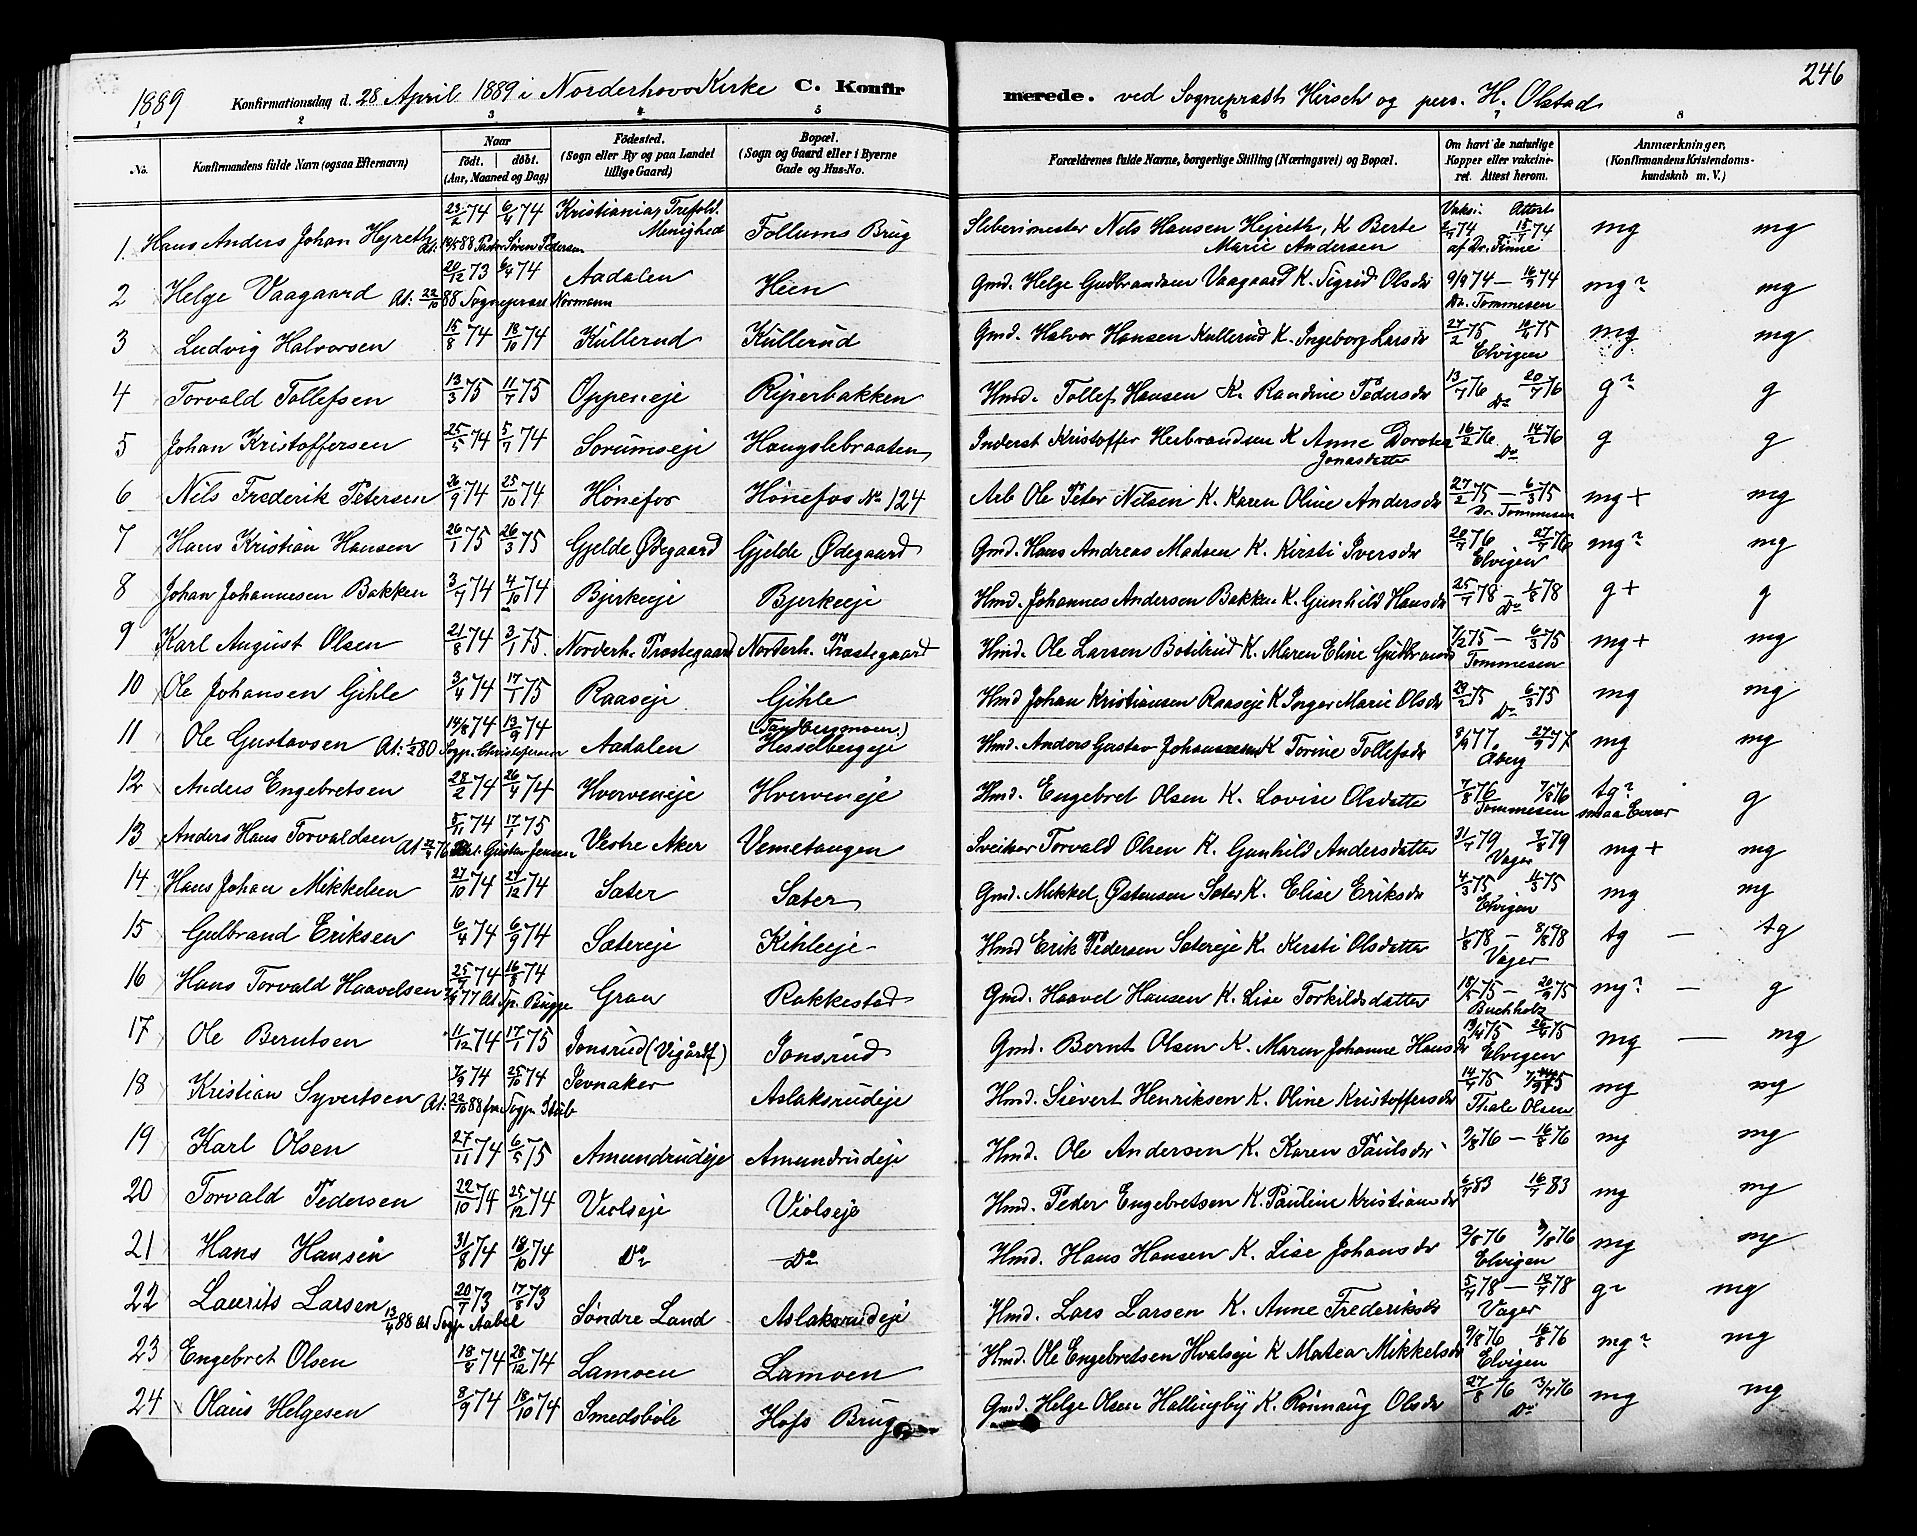 246
1889 Konfirmationsdag d. 28 April 1889 i Norderhovs Kirke C. Konfirmerede. ved Sogneprest Hirsch og pers. H. Olstad
1 2 3 4 5 6 7 8
No. Konfirmandens fulde Navn (ogsaa Efternavn) Naar födt. döbt. (Aar, Maaned og Dag) Födested. (Sogn eller By og paa Landet tillige Gaard) Bopæl. (Sogn og Gaard eller i Byerne Gade og Hus-No. Forældrenes fulde Navne, borgerlige Stilling (Næringsvei) og Bopæl. Om havt de naturlige Kopper eller vakcineret. Attest herom. Anmærkninger, (Konfirmandens Kristendomskundskab m. V.)
1. Hans Anders Johan Hejreth 23/2 74 6/4 74 Kristiania, Trefold. Menighed Follums Brug Sliberimester Nils Hansen Hejreth, K Berte Marie Andersen Vaksi. Attest 2/7 74 15/7 74 af Dr. Tinne mg mg
At. 14/5 88 Pastor Sören Pedersen
2 Helge Vaagaard 20/12 73 6/4 74 Aadalen Heen Gmd. Helge Gudbrandsen Vaagaard K. Sigrid Olsdr 9/9 74 — 16/9 74 Dr. Tommesen mg? mg
At: 22/10 88 Sogneprest Normann
3 Ludvig Halvorsen 15/8 74 18/10 74 Kullerud Kullerud Gmd. Halvor Hansen Kullerud K. Ingeborg Larsdr 27/2 75 12/4 75 Elvigen mg mg
4 Torvald Tollefsen 13/3 75 11/7 75 Oppeneje Riperbakken Hmd. Tollef Hansen K. Randine Pedersdr 13/7 76 20/7 76 Do g? g
5 Johan Kristoffersen 25/5 74 5/7 74 Sorumseje Haugslebraaten Inderst Kristoffer Herbrandsen K Anne Dorotea Jonasdatter 16/2 76 14/2 76 Do g g
6 Nils Frederik Petersen 26/9 74 25/10 74 Hönefos Hönefos No 124 Arb Ole Peter Nilsen K. Karen Oline Andersdr 27/2 75 — 6/3 75 Dr. Tommesen mg + mg
7 Hans Kristian Hansen 26/1 75 26/3 75 Gjelde Ødegaard Gjelde Ødegaard Gmd. Hans Andreas Madsen K. Kirsti Iversdr 20/7 76 27/7 76 Elvigen mg? mg
8 Johan Johannesen Bakken 3/7 74 4/10 74 Bjerkeeje Bjerkeeje Hmd. Johannes Andersen Bakken K. Gunhild Hansdr 25/7 78 — 1/8 78 Do g + g
9 Karl August Olsen 21/8 74 3/1 75 Norderh. Prestegaard Norderh. Prestegaard Hmd. Ole Larsen Botilrud K. Maren Eline Gudbrands 7/2 75 — 6/3 75 Tommesen mg + mg
10 Ole Johansen Gihle 3/4 74 17/1 75 Raaseje Gihle Hmd Johan Kristiansen Raaseje K Inger Marie Olsdr 29/2 75 6/3 75 Do mg mg
11 Ole Gustavsen 14/8 74 13/9 74 Aadalen (Tandbergmoen) Hesselbergeje Hmd. Anders Gustav Johannesen K Torine Tollefsdr 8/9 77. 27/9 77 Aberg mg mg
At: 1/2 80 Sogp. Christophersen
12 Anders Engebretsen 28/2 74 26/4 74 Hverveneje Hverveneje Hmd. Engebret Olsen K. Lovise Olsdatter 7/8 76 7/8 76 Tommesen tg? smaa Evner g
13 Anders Hans Torvaldsen 5/11 74 17/1 75 Vestre Aker Vemetangen Sveitser Torvald Olsen K. Gunhild Andersdatter 31/7 79 7/8 79 Vager mg + mg
At 76 Gustav Jensen
14 Hans Johan Mikkelsen 27/10 74 27/12 74 Sæter Sæter Gmd. Mikkel Østensen Sæter K. Elise Eriksdr 4/3 75 11/3 75 Elvigen mg mg
15 Gulbrand Eriksen 6/4 74 6/9 74 Sætereje Kihleeje Hmd Erik Pedersen Sætereje K. Kersti Olsdatter 1/8 78 — 8/8 78 Vager tg — tg
16 Hans Torvald Haavelsen 25/7 74 16/8 74 Gran Rakkestad Gmd. Haavel Hansen K. Lise Torkildsdatter 18/5 75 — 20/9 75 Buchholz mg? — g
77 At Sp. Bugge
17 Ole Berntsen 11/12 74 17/1 75 Jonsrud (Vigårdf) Jonsrud Gmd. Bernt Olsen K. Maren Johanne Hansdr 19/4 75 26/4 75 Elvigen mg — mg
18 Kristian Syvertsen 7/9 74 25/10 74 Jevnaker Aslaksrudeje Hmd. Sievert Henriksen K. Oline Kristoffersdr 14/7 75 75 Thale Olsen mg mg
At: 22/10 88 fra Sogp Stub
19 Karl Olsen 27/11 74 6/5 75 Amundrudeje Amundrudeje Hmd. Ole Andersen K. Karen Paulsdr 9/8 76 — 16/8 76 mg mg
20 Torvald Pedersen 22/10 74 25/12 74 Violseje Violseje Hmd. Peder Engebretsen K. Pauline Kristiansdr 6/7 83 16/7 83 mg mg
21 Hans Hansen 31/8 74 18/10 74 Do Do Hmd. Hans Hansen K. Lise Johansdr 2/8 76 3/8 76 Elvigen mg mg
22 Laurits Larsen 20/7 73 17/8 73 Søndre Land Aslaksrudeje Hmd. Lars Larsen K. Anne Frederiksdr 5/7 78 — 12/7 78 Vager g? mg
13/4 88 At Sogp Aabel
23 Engebret Olsen 18/8 74 28/12 74 Lamoen Lamoen Hmd. Ole Engebretsen Hvalseje K Matea Mikkelsdr 9/8 76 16/8 76 Elvigen mg? mg
24 Olaus Helgesen 8/9 74 18/10 74 Smedsböle Hofs Brug Gmd. Helge Olsen Hallingby K. Rönnaug Olsdr 27/8 76 3/7 76 Do mg mg